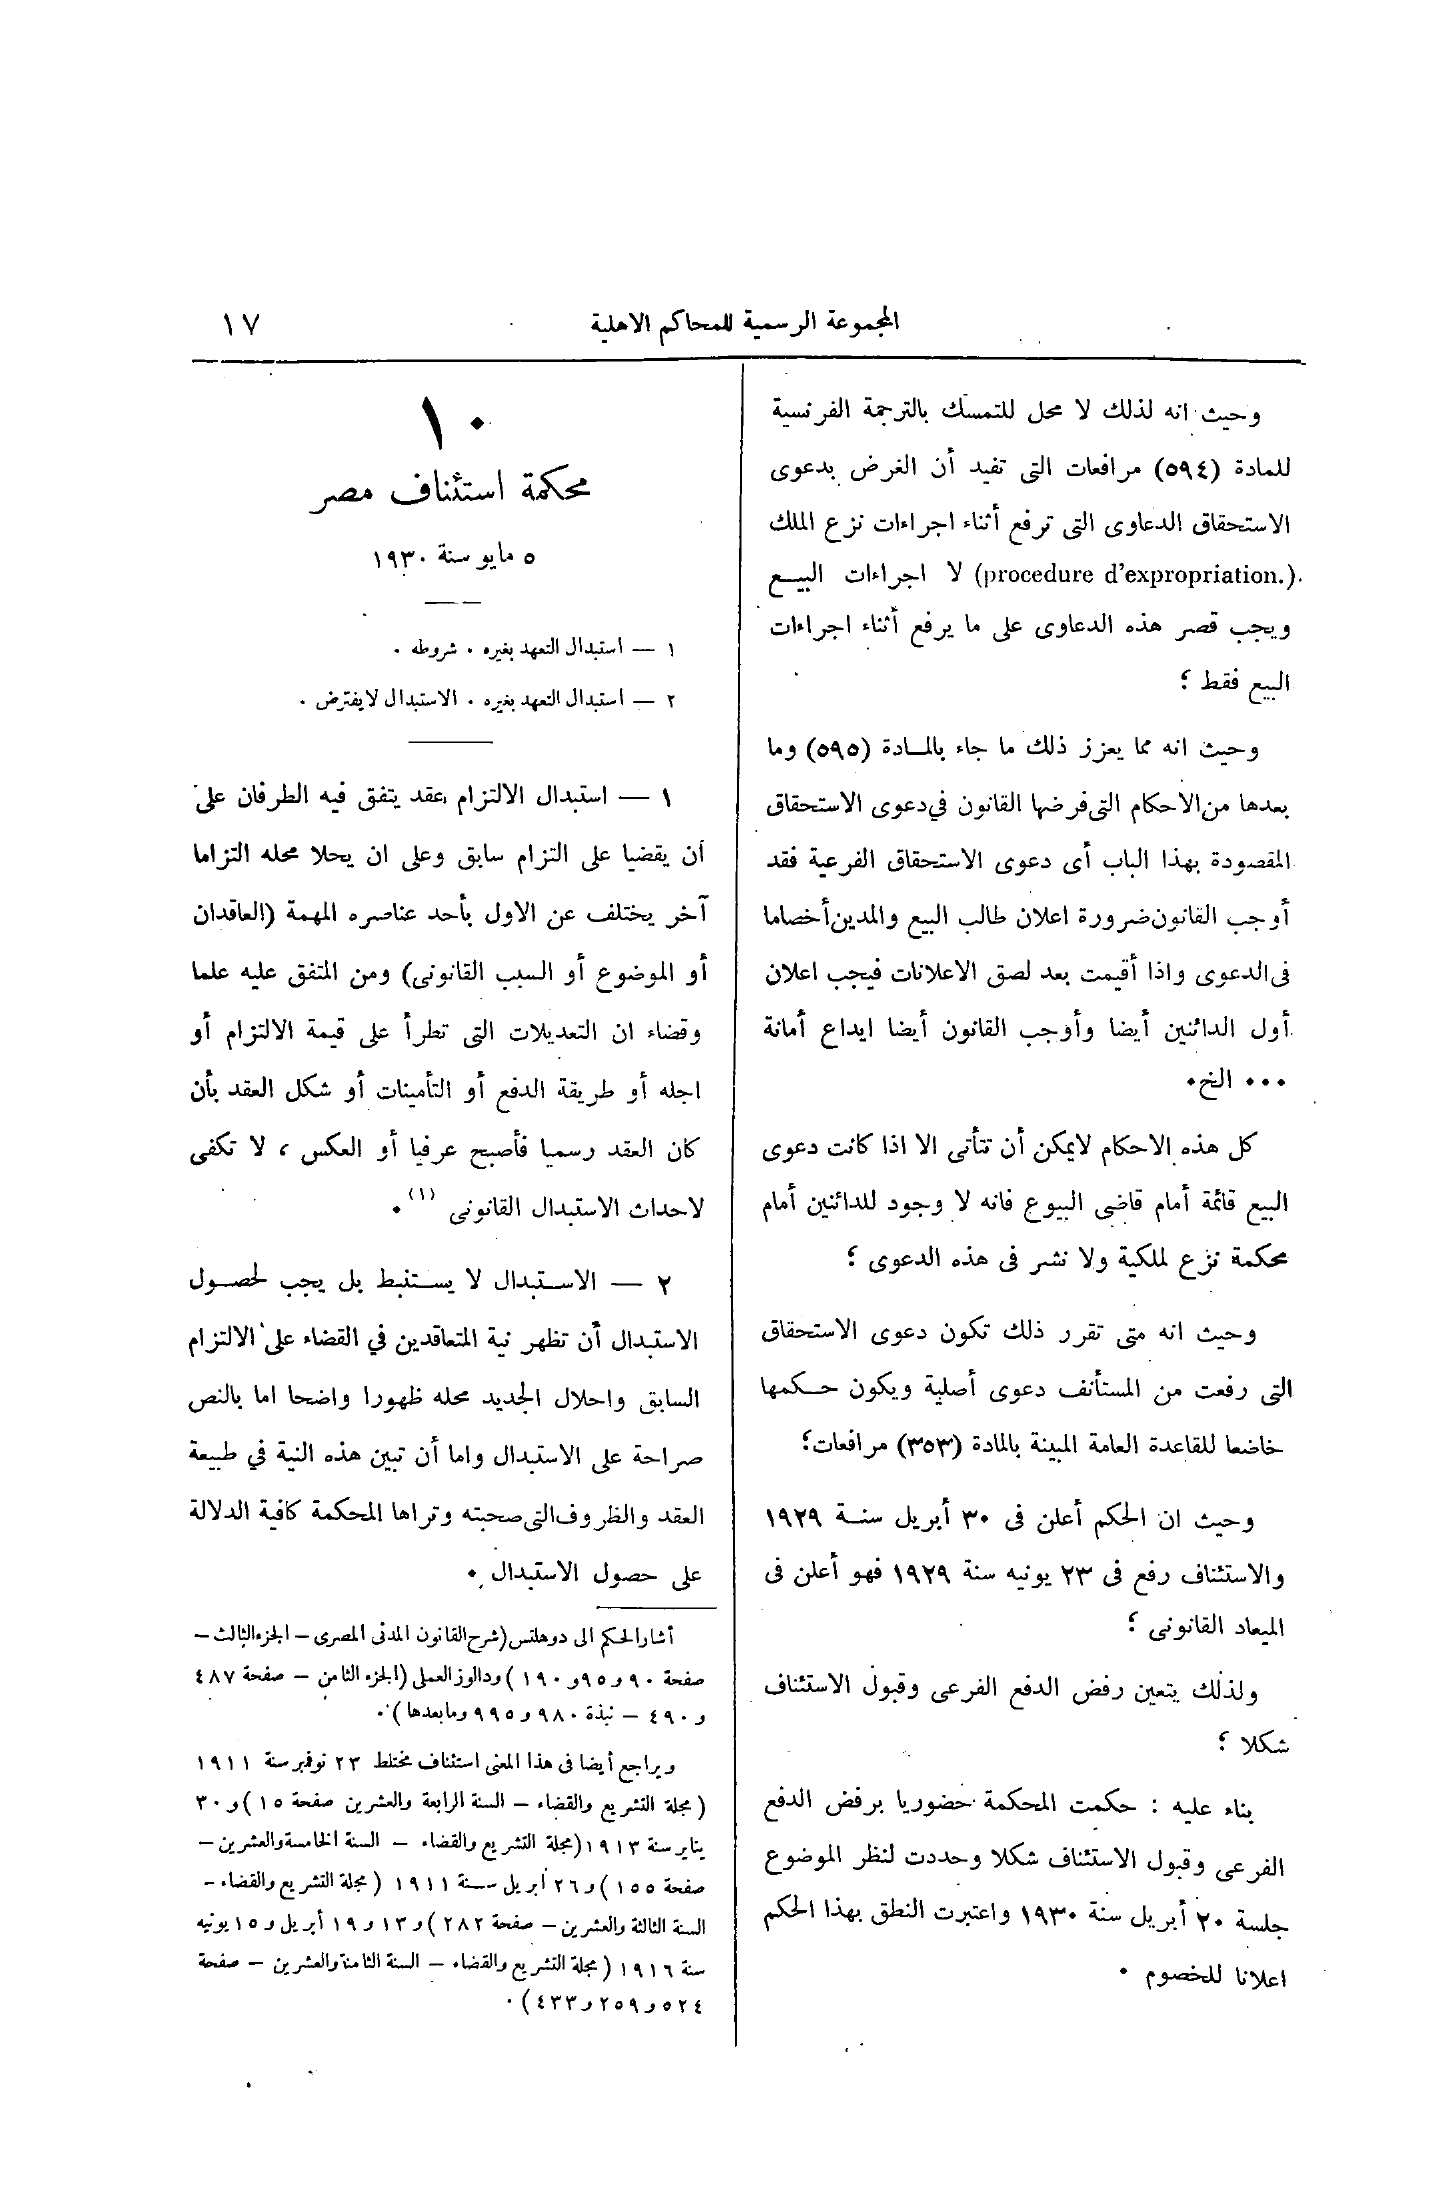 المجموعة الرسمية للمحاكم الاهلية
١٧
وحيث انه لذلك لا محل للتمسك بالترجمة الفرنسية
للمادة (٥٩٤) مرافعات التى تفيد أن الغرض بدعوى
الاستحقاق الدعاوى التى ترفع أثناء اجراءات نزع الملك
(procedure d'expropriation.) لا اجراءات البيع
ويجب قصر هذه الدعاوى على ما يرفع أثناء اجراءات
البيع فقط ؛
وحيث انه مما يعزز ذلك ما جاء بالمادة (٥٩٥) وما
بعدها من الاحكام التى فرضها القانون في دعوى الاستحقاق
المقصودة بهذا الباب أى دعوى الاستحقاق الفرعية فقد
أوجب القانون ضرورة اعلان طالب البيع والمدين أخصاما
فى الدعوى واذا أقيمت بعد لصق الاعلانات فيجب اعلان
أول الدائنين أيضا وأوجب القانون أيضا ايداع أمانة
٠٠٠ الخ٠
كل هذه الاحكام لايمكن أن تتأتى الا اذا كانت دعوى
البيع قائمة أمام قاضى البيوع فانه لا وجود للدائنين أمام
محكمة نزع لملكية ولا نشر فى هذه الدعوى ؛
وحيث انه متى تقرر ذلك تكون دعوى الاستحقاق
التى رفعت من المستأنف دعوى أصلية ويكون حكمها
خاضعا للقاعدة العامة المبينة بالمادة (٣٥٣) مرافعات؛
وحيث ان الحكم أعلن فى ٣٠ أبريل سنة ١٩٢٩
والاستئناف رفع فى ٢٣ يونيه سنة ١٩٢٩ فهو أعلن فى
الميعاد القانونى ؛
ولذلك يتعين رفض الدفع الفرعى وقبول الاستئناف
شكلا ؛
بناء عليه : حكمت المحكمة حضوريا برفض الدفع
الفرعى وقبول الاستئناف شكلا وحددت لنظر الموضوع
جلسة ٢٠ أبريل سنة ١٩٣٠ واعتبرت النطق بهذا الحكم
اعلانا للخصوم ٠
١٠
محكمة استئناف مصر
٥ مايو سنة ١٩٣٠
١ — استبدال التعهد بغيره ٠ شروطه ٠
٢ — استبدال التعهد بغيره ٠ الاستبدال لايفترض ٠
١ — استبدال الالتزام عقد يتفق فيه الطرفان على
أن يقضيا على التزام سابق وعلى ان يحلا محله التزاما
آخر يختلف عن الاول بأحد عناصره المهمة (العاقدان
أو الموضوع أو السبب القانونى) ومن المتفق عليه علما
وقضاء ان التعديلات التى تطرأ على قيمة الالتزام أو
اجله أو طريقة الدفع أو التأمينات أو شكل العقد بأن
كان العقد رسميا فأصبح عرفيا أو العكس ، لا تكفى
لاحداث الاستبدال القانونى (١)٠
٢ — الاستبدال لا يستنبط بل يجب لحصول
الاستبدال أن تظهر نية المتعاقدين في القضاء على الالتزام
السابق واحلال الجديد محله ظهورا واضحا اما بالنص
صراحة على الاستبدال واما أن تبين هذه النية في طبيعة
العقد والظروف التى صحبته وتراها المحكمة كافية الدلالة
على حصول الاستبدال ٠
أشار الحكم الى دوهلتس (شرح القانون المدنى المصرى – الجزء الثالث –
صفحة ٩٠ و٩٥ و١٩٠ ) ودالوز العملى (الجزء الثامن – صفحة ٤٨٧
و ٤٩٠ – نبذة ٩٨٠ و٩٩٥ ومابعدها )٠
ويراجع أيضا فى هذا المعنى استئناف مختلط ٢٣ نوفمبر سنة ١٩١١
( مجلة التشريع والقضاء – السنة الرابعة والعشرين صفحة ١٥ ) و ٣٠
يناير سنة ١٩١٣ (مجلة التشريع والقضاء – السنة الخامسة والعشرين –
صفحة ١٥٥ ) و٢٦ أبريل سنة ١٩١١ ( مجلة التشريع والقضاء –
السنة الثالثة والعشرين – صفحة ٢٨٢ ) و١٣ و ١٩ أبريل و ١٥ يونيه
سنة ١٩١٦ ( مجلة التشريع والقضاء – السنة الثامنة والعشرين – صفحة
٥٢٤ و٢٥٩ و٤٣٣ ) ٠